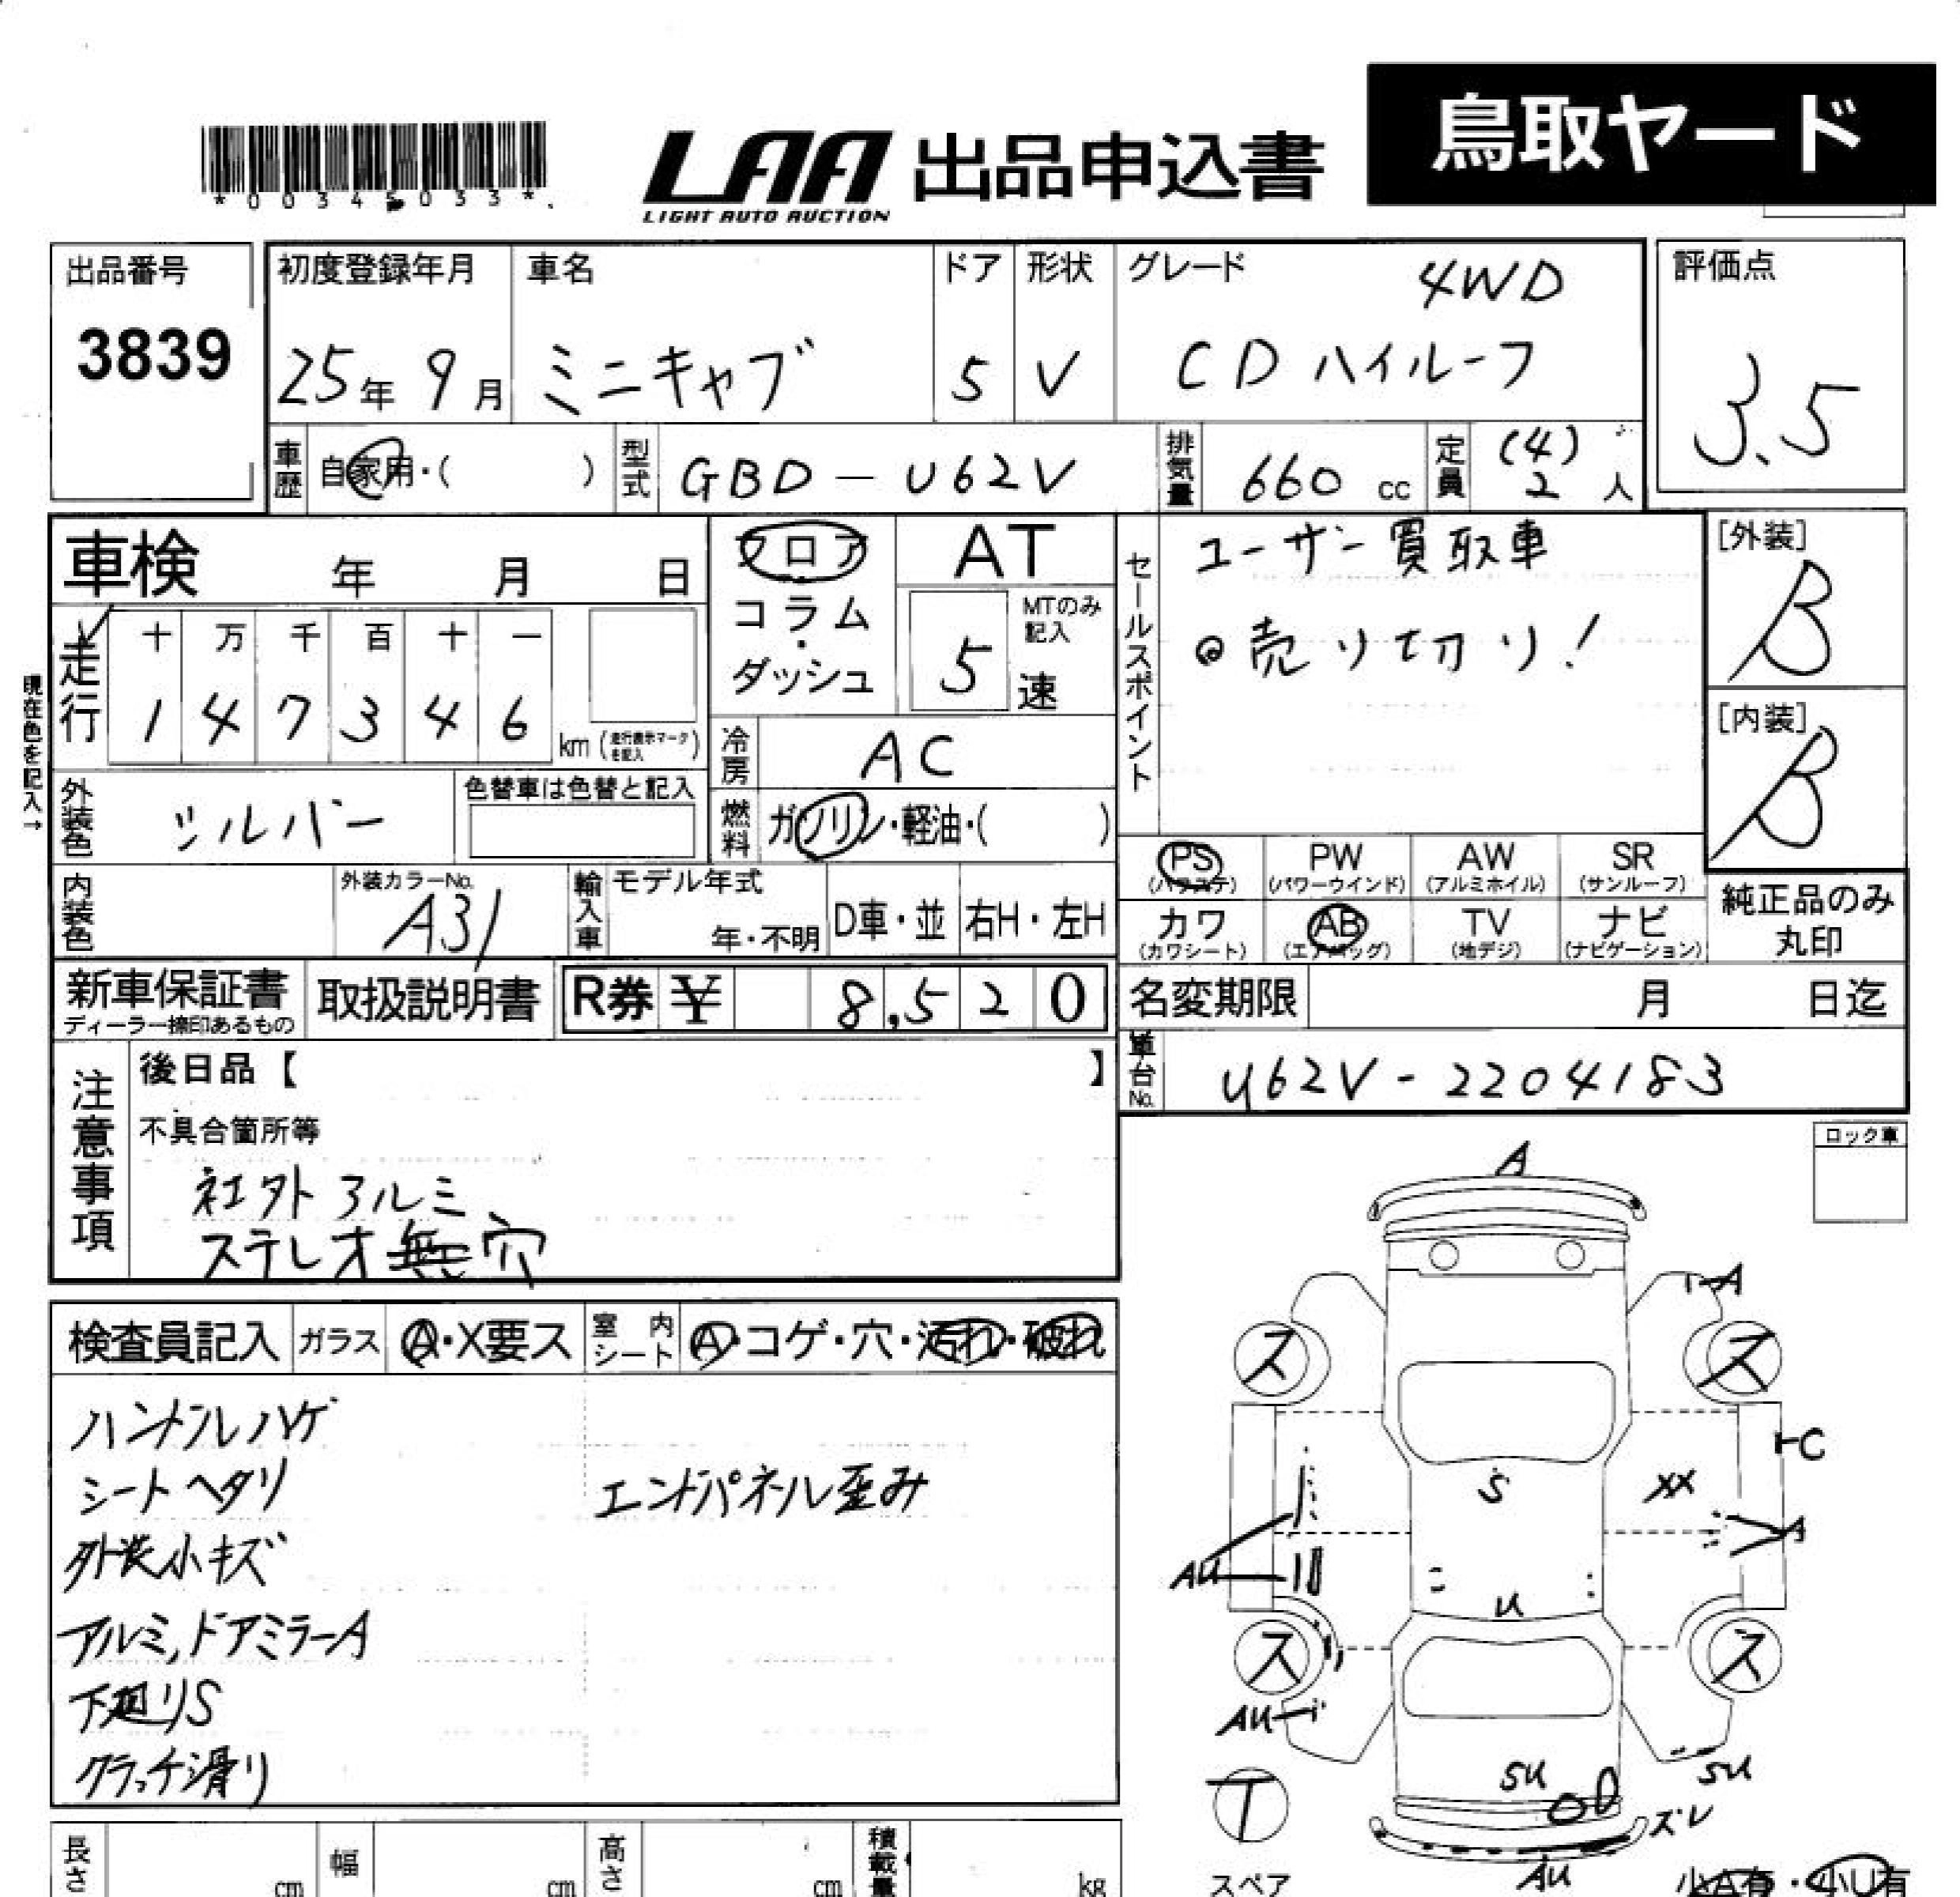 鳥取ヤード
*00345033*
LAA 出品申込書
LIGHT AUTO AUCTION
出品番号 3839
初度登録年月 25年 9月
車名 ミニキャブ
ドア 5
形状 V
グレード 4WD
CD ハイルーフ
評価点 3.5
車歴 自家用・( )
型式 GBD-U62V
排気量 660 cc
定員 (4) 2 人
車検 年 月 日
フロア・コラム・ダッシュ
AT
5 速 MTのみ記入
セールスポイント
ユーザー買取車
◎売り切り!
[外装] B
[内装] B
現在色を記入→
走行 十 万 千 百 十 一
1 4 7 3 4 6 km (走行表示マークを記入)
冷房 AC
燃料 ガソリン・軽油・( )
外装色 シルバー
色替車は色替と記入
内装色
外装カラーNo. A31
輸入車 モデル年式 年・不明
D車・並 右H・左H
PS (パワステ)
PW (パワーウインド)
AW (アルミホイル)
SR (サンルーフ)
カワ (カワシート)
AB (エアバッグ)
TV (地デジ)
ナビ (ナビゲーション)
純正品のみ丸印
新車保証書 ディーラー捺印あるもの
取扱説明書
R券 ¥ 8,520
名変期限 月 日迄
車台No. U62V-2204183
注意事項
後日品【 】
不具合箇所等
社外アルミ
ステレオ無穴
ロック車
検査員記入 ガラス A・X要ス
室内シート A・コゲ・穴・汚れ・破れ
ハンドルハゲ
シートヘタリ
エンドパネル歪み
外装小キズ
アルミ,ドアミラーA
下廻りS
クラッチ滑り
A
A
ス ス
C
S XX
A
AU
U
ス ス
AU
SU SU
T
ズレ
AU
スペア
小A有・小U有
長さ cm
幅 cm
高さ cm
積載量 kg